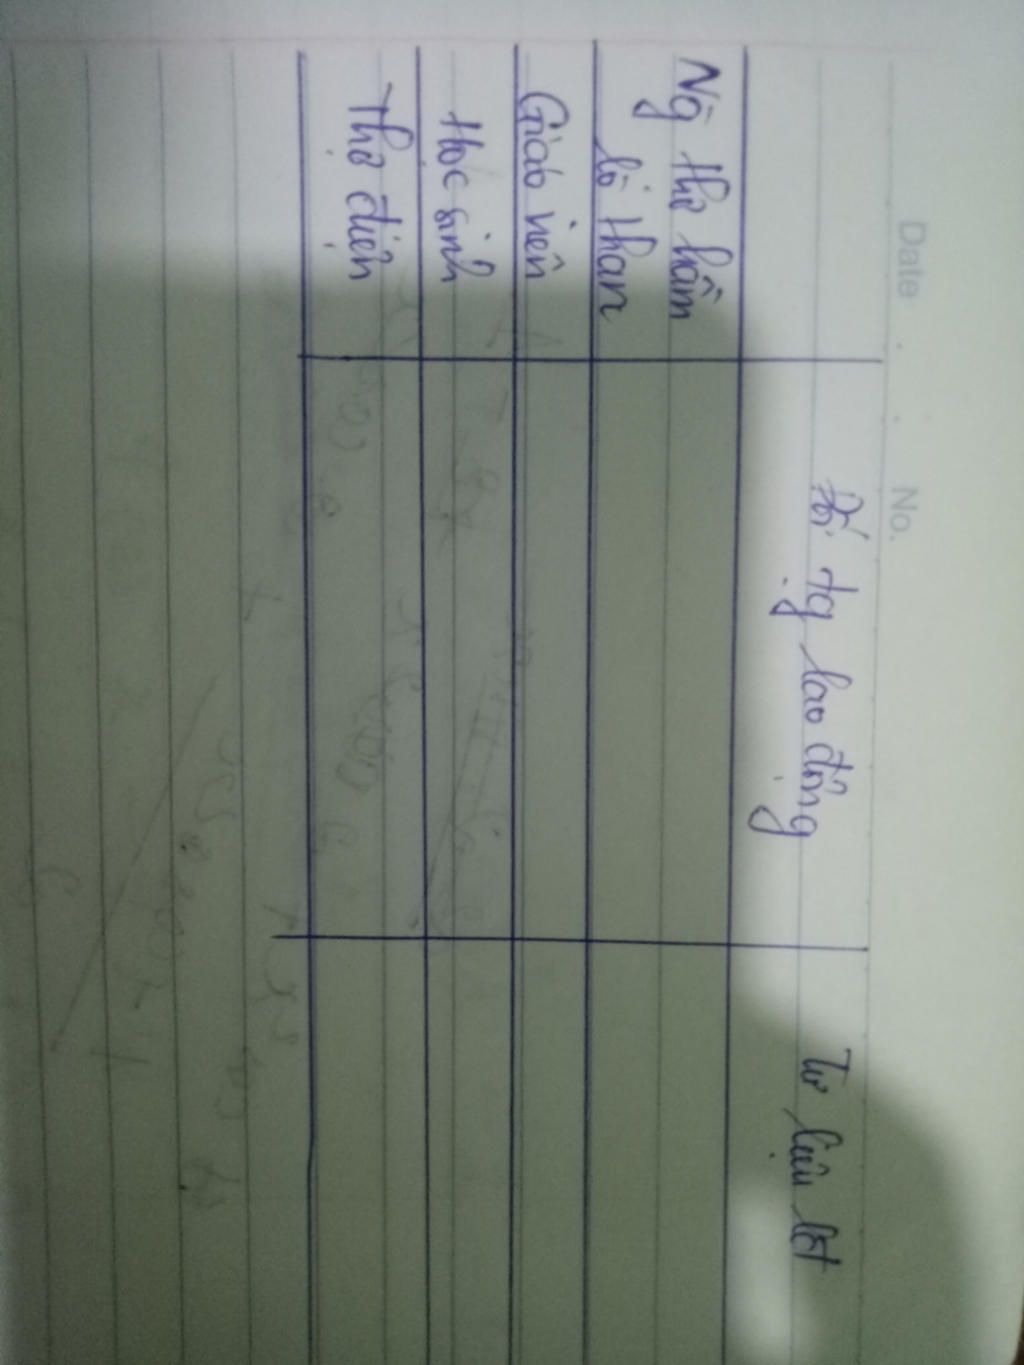 Date . . No.
Đối tg lao động
Tư liệu lđ
Ng thợ hầm
lò than
Giáo viên
Học sinh
Thợ điện